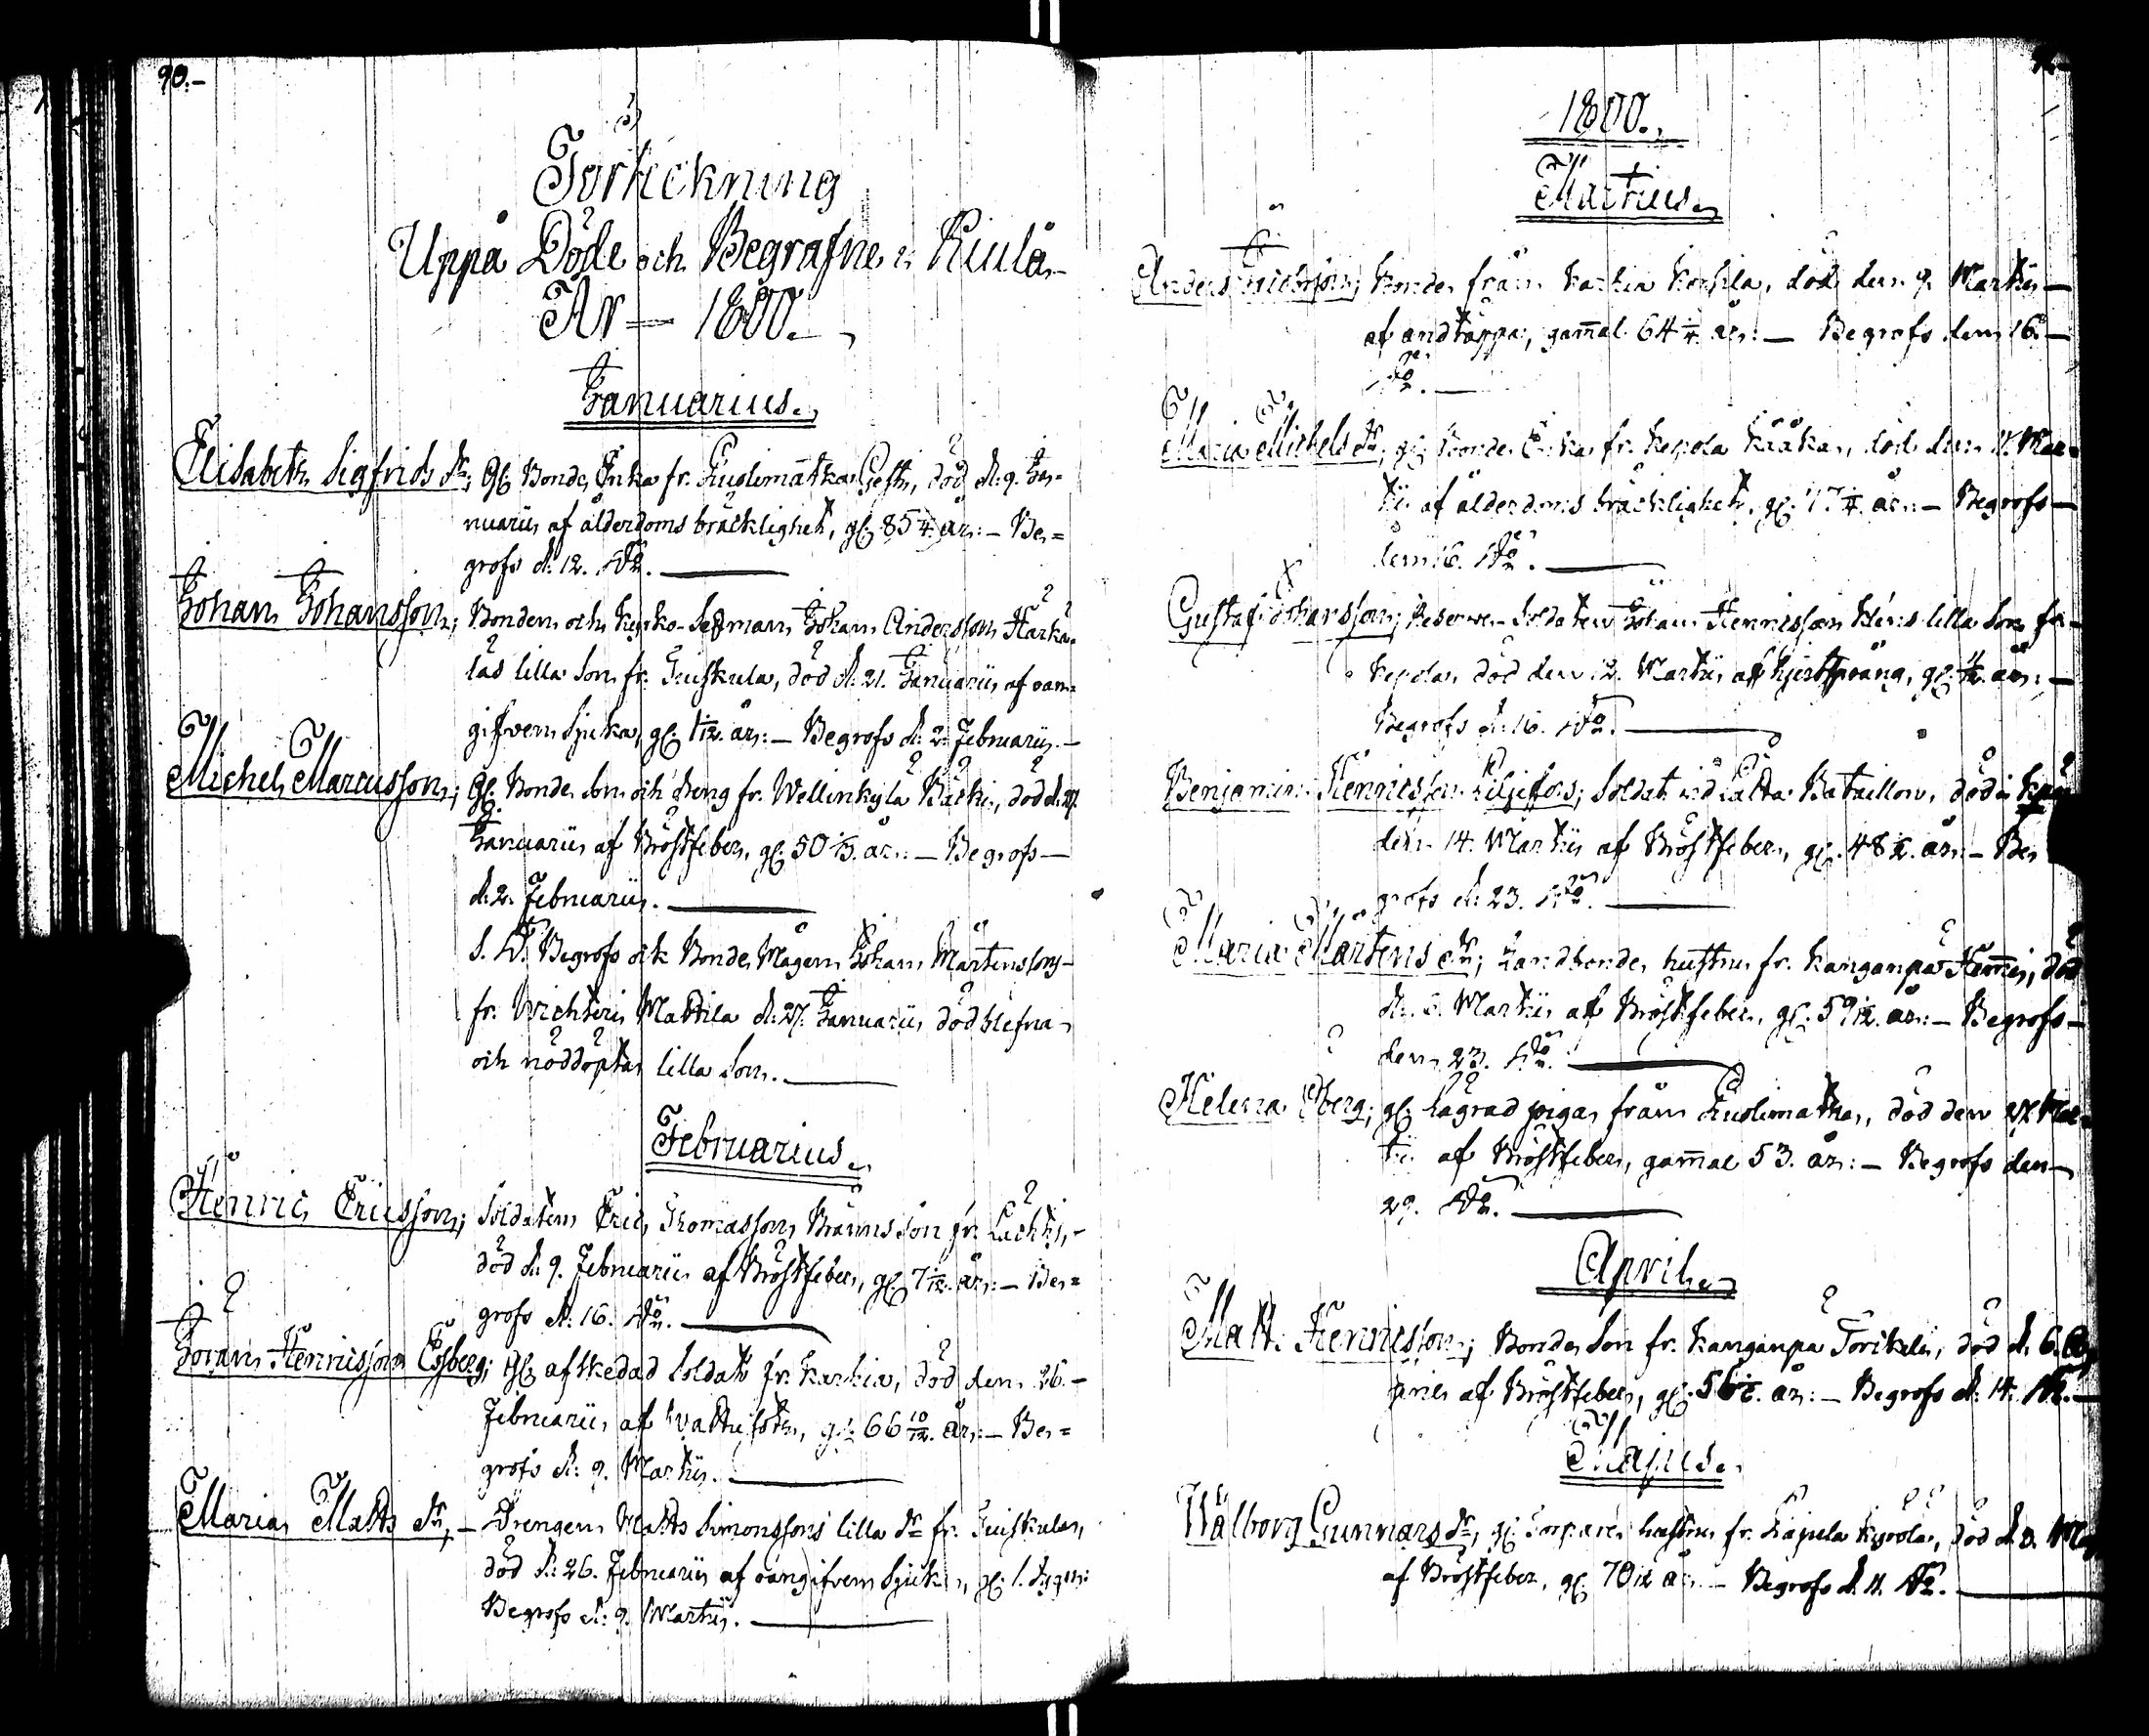 90.-
Förteckning
Uppå Döde och Begrafne i Kiula
År — 1800.
Januarius.
Elisabeth Sigfrids dr; Gl: Bonde Enka fr. Kuolimatka Gesti, död d: 9. Ja=
nuarii af ålderdoms bräcklighet, gl: 85 år: — Be=
grofs d: 12. dto.
Johan Johansson; Bonden och Kyrko-Sexman Johan Andersson Harka=
las lilla Son fr. Juskula, död d: 21. Januarii af oan=
gifven Sjuka, gl: 1/12 år: — Begrofs d: 2. Februarii.
Michel Marcusson; Gl: Bonde Son och dreng fr. Wellinkylä Bäcki, död d: 27.
Januarii af Bröstfeber, gl: 50 år: — Begrofs —
d: 2. Februarii.
S. D. Begrofs ock Bonde Mågen Johan Mårtenssons
fr. Wichteri Mattila d: 27. Januarii dödblefna
och nöddöpta lilla Son.
Februarius.
Henric Ericsson; Soldaten Eric Thomasson Branns Son fr. Lachti,
död d: 9. Februarii af Bröstfeber, gl: 7 år: — Be=
grofs d: 16. dto.
Göran Henricsson Esberg; Gl: afskedad Soldat fr. Karhia, död den 26. —
Februarii af Wattusoten, gl: 66 10/12. år: — Be=
grofs d: 9. Martii.
Maria Matts dr, — Drengen Matts Simonssons lilla dr fr. Juskula,
död d: 26. Februarii af oangifven Sjuka, gl: 1. dygn:
Begrofs d: 9. Martii.
1800.
Martius.
Anders; Bonde från Karhia, död den 9. Martii —
af andtäppa, gamal 64 år: — Begrofs den 16. —
dto.
Maria Michels dr, gl: Bonde Enka fr. Kepola Kääkä, död den Mar=
tii af ålderdoms bräcklighet, gl: år: — Begrofs —
den 16. dto.
Gustaf Johansson; Reserve-Soldaten Johan Henricsson lilla Son fr
Kepola, död den 12. Martii af hjertsprång, gl: år: —
Begrofs d: 16. dto.
Benjamin Henricsson Liljefors; Soldat vid Bataillon, död i
den 14. Martii af Bröstfeber, gl: 48 år: — Be
grofs d: 23. dto.
Maria Mårtens dr; Landbonde hustru fr. Kanganpä Hemi, död
d: Martii af Bröstfeber, gl: 59 år: — Begrofs —
den 23. dto.
Helena; gl: lägrad piga från Kuolimatka, död den Mar=
tii af Bröstfeber, gamal 53. år: — Begrofs den
29. dto.
April.
Matt. Henricsson; Bonde Son fr. Kanganpä, död d. 6. Ap
rilis af Bröstfeber, gl: 56 år: — Begrofs d: 14. dto. —
Majus.
Wålborg Gunnars dr, gl: Torpare hustru fr. Käpylä, död d. Maj
af Bröstfeber, gl: 70 år — Begrofs d. 11. dto.